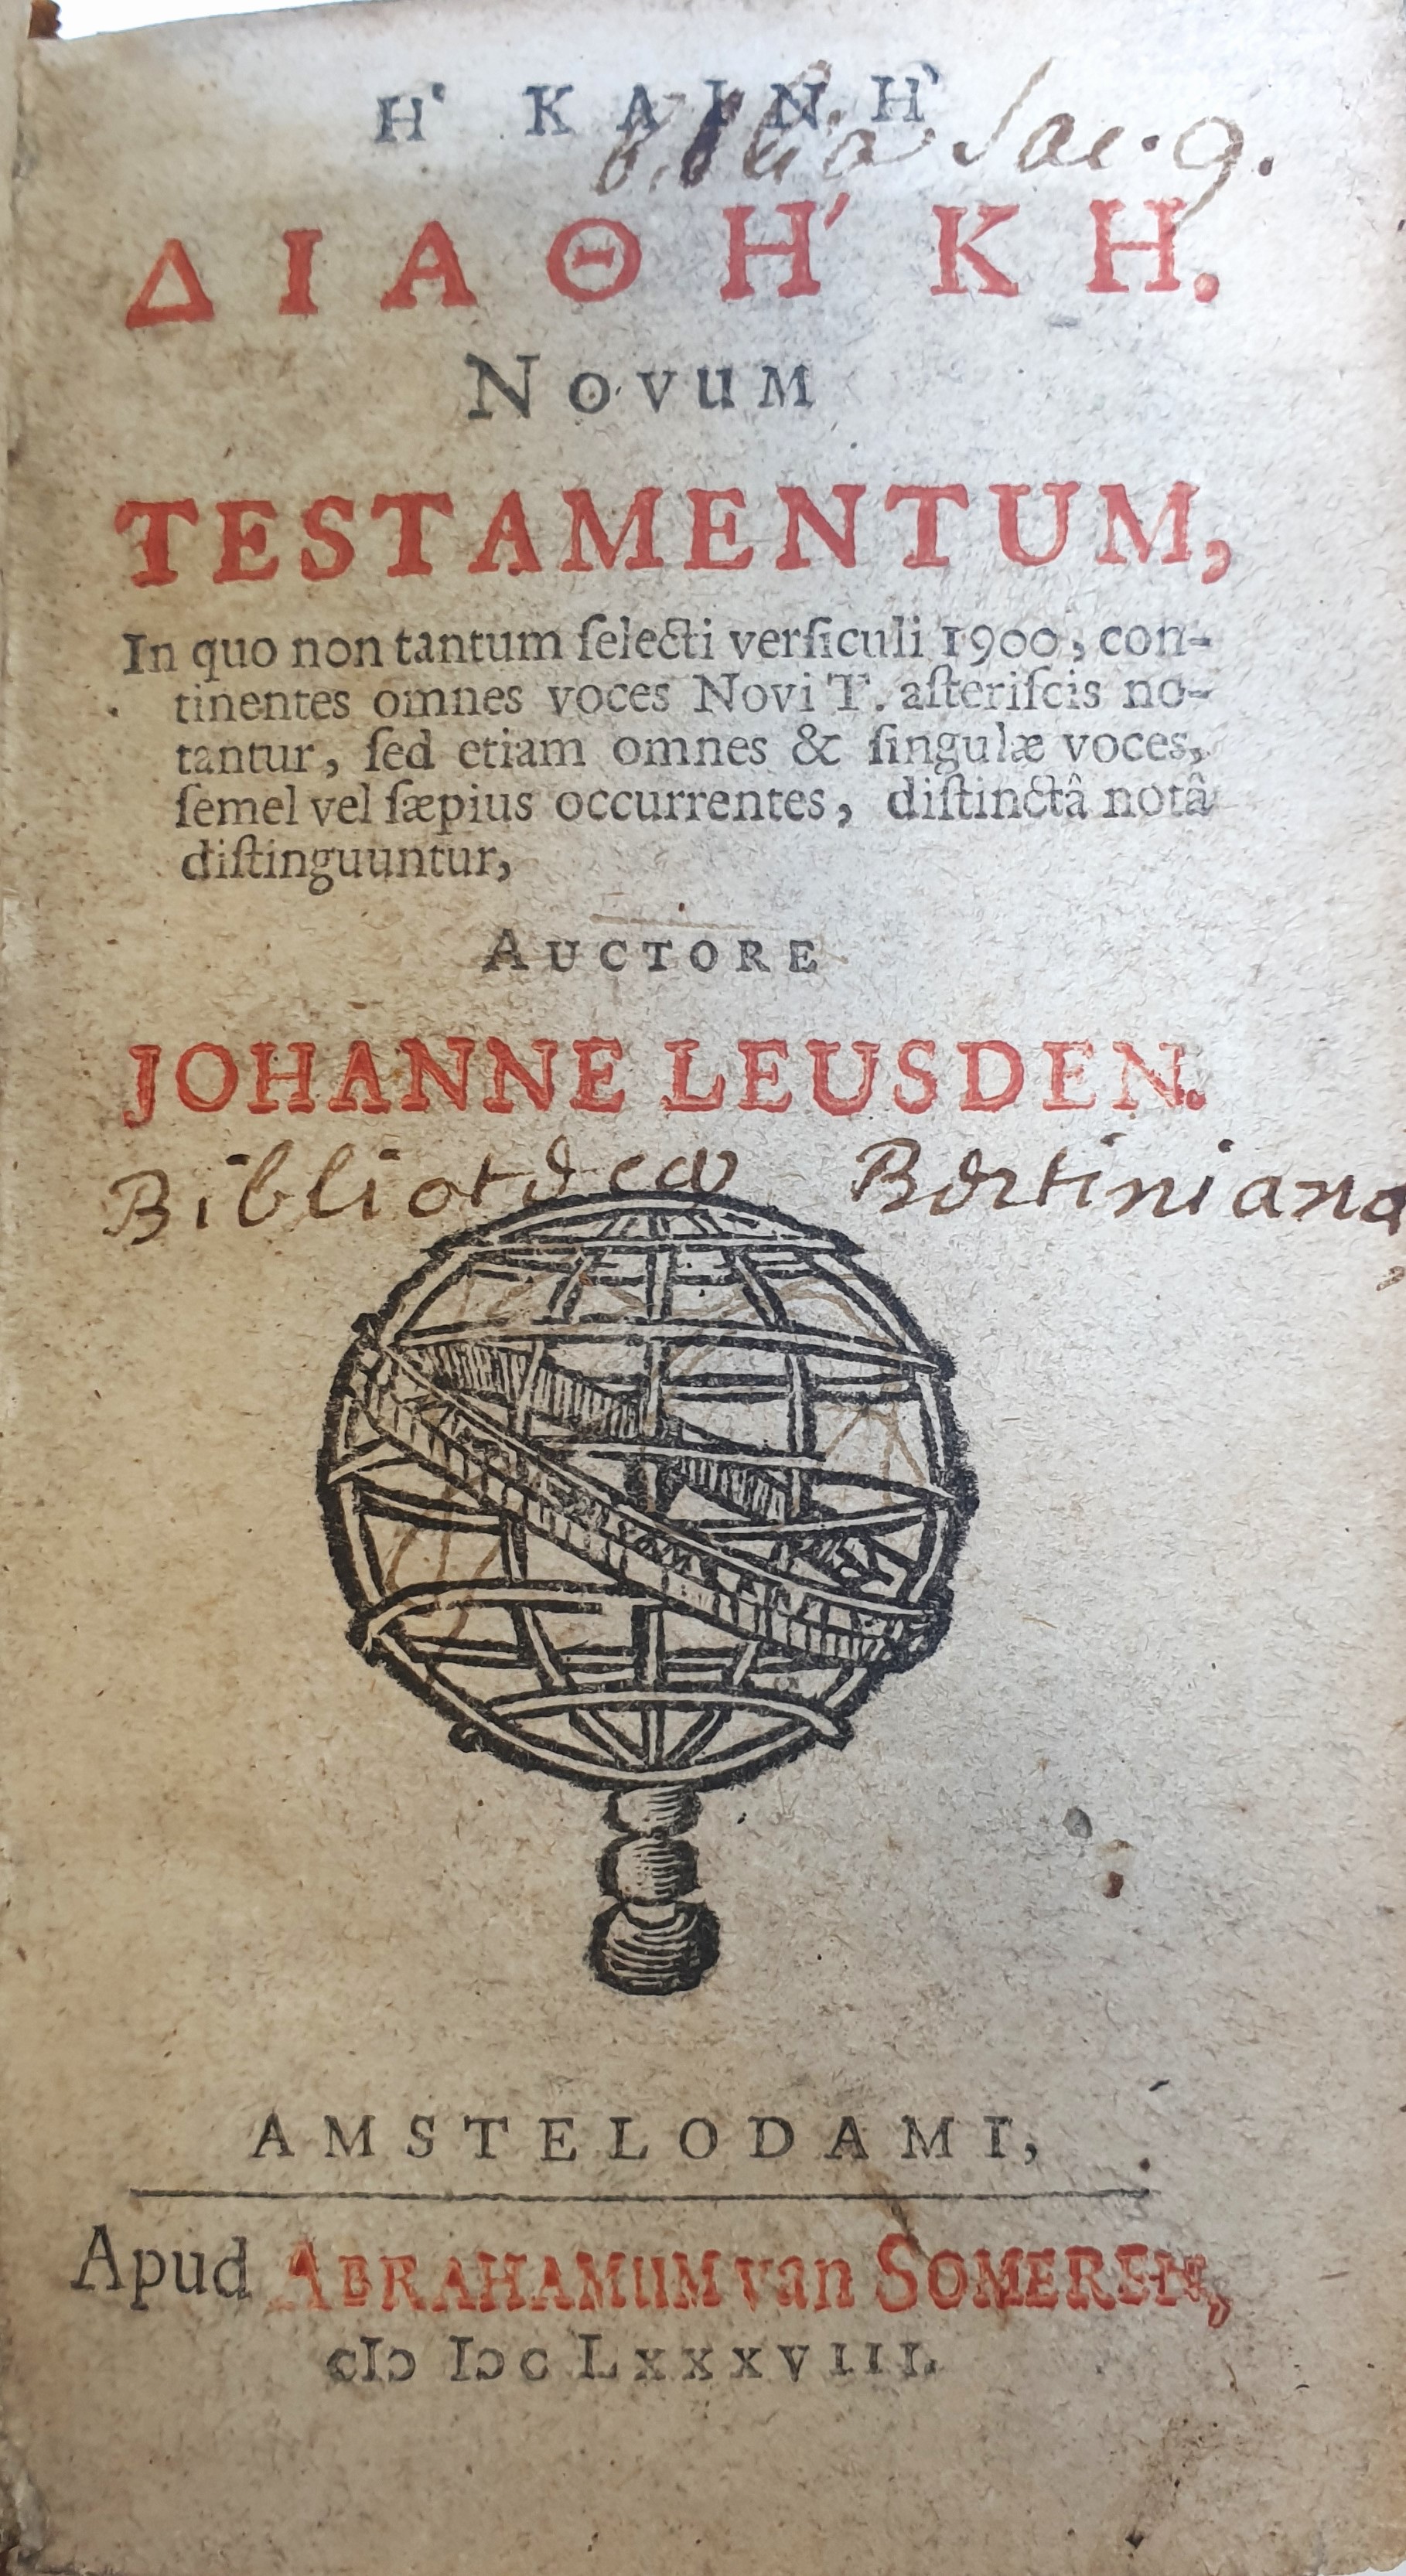 Η῾ ΚΑΙΝῊ
biblia Sac. 9.
ΔΙΑΘΉΚΗ.
NOVUM
TESTAMENTUM,
In quo non tantum ſelecti verſiculi 1900, con-
tinentes omnes voces Novi T. aſteriſcis no-
tantur, ſed etiam omnes & ſingulæ voces,
ſemel vel ſæpius occurrentes, diſtinctâ notâ
diſtinguuntur,
AUCTORE
JOHANNE LEUSDEN.
AMSTELODAMI,
Apud ABRAHAMUM van SOMEREN,
cIↄ Iↄc LXXXVIII.